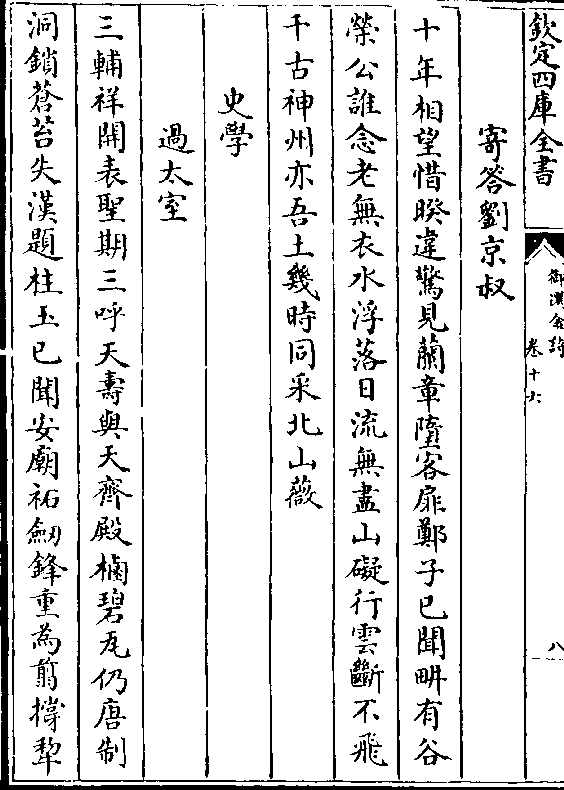 欽定四庫全書
御選金詩
卷十六
八
寄答劉京叔
十年相望惜暌違驚見蘭章墮客扉鄭子已聞畊有谷
榮公誰念老無衣水浮落日流無盡山礙行雲斷不飛
千古神州亦吾土幾時同采北山薇
史學
過太室
三輔祥開表聖期三呼天壽與天齊殿楠碧瓦仍唐制
洞鎖蒼苔失漢題柱玉已聞安廟祏劒鋒重為翦撐犂